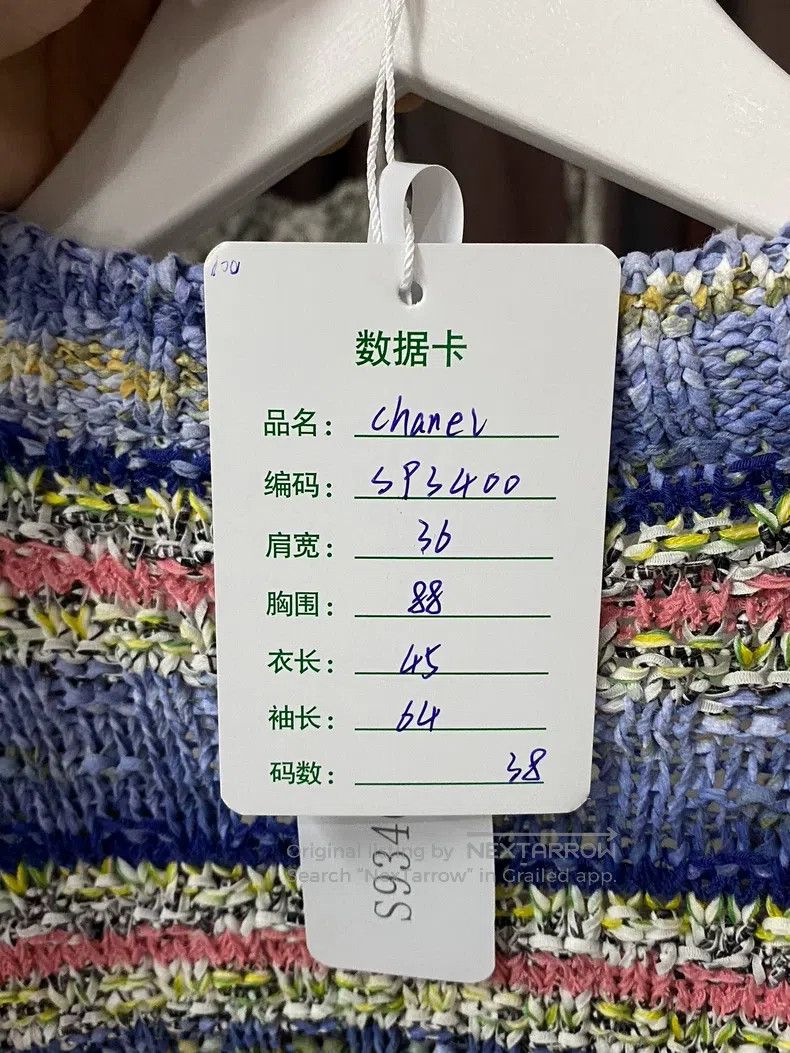 数据卡
品名： Chanel
编码： S93400
肩宽： 36
胸围： 88
衣长： 45
袖长： 64
码数： 38
S934
Original listing by NEXTARROW
Search "NexTarrow" in Grailed app.